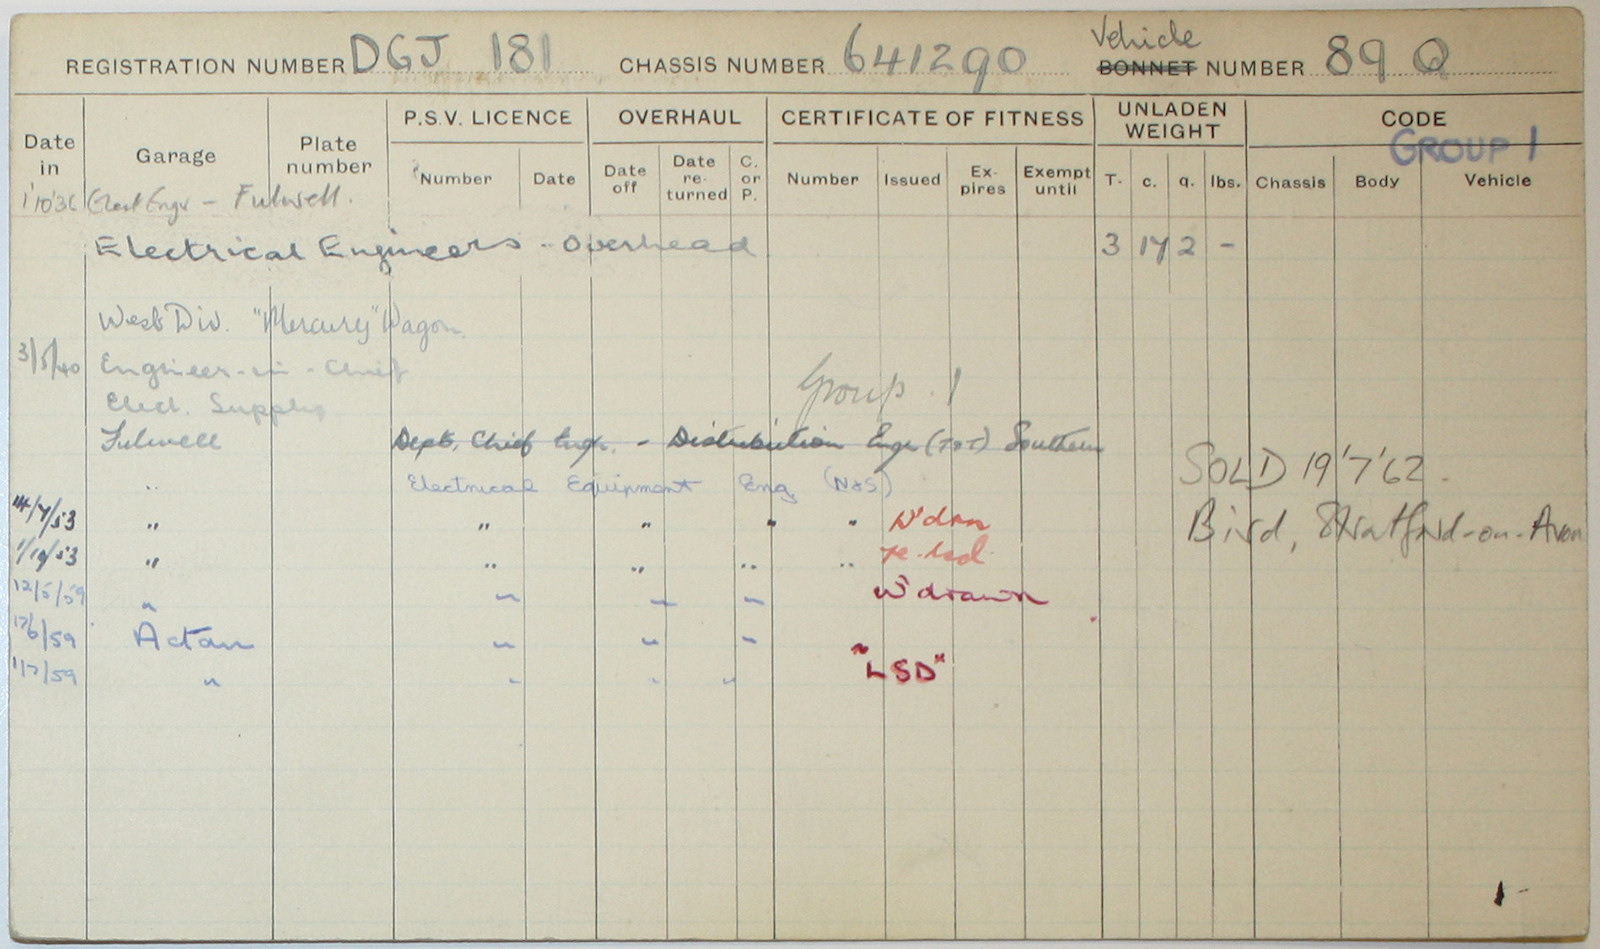 Vehicle
REGISTRATION NUMBER DGJ 181 CHASSIS NUMBER 641290 BONNET NUMBER 89 Q
Date in Garage Plate number P.S.V. LICENCE OVERHAUL CERTIFICATE OF FITNESS UNLADEN WEIGHT CODE
GROUP 1
Number Date Date off Date re-turned C. or P. Number Issued Ex-pires Exempt until T. c. q. lbs. Chassis Body Vehicle
1'10'36 Elect Engr - Fulwell.
Electrical Engineers - Overhead 3 17 2 -
West Div. "Mercury" Wagon
3/5/40 Engineer-in-Chief
Elect. Supply
Group. 1
Fulwell Dept. Chief Engr. - Distribution Engr (T&T) Southern
" Electrical Equipment Eng (N&S)
SOLD 19'7'62.
14/7/53 " " " " " W'drn
Bird, Stratford-on-Avon
1/10/53 " " " " " re-lsd
12/5/59 " " " " W'drawn
12/6/59 Acton " " "
1/7/59 " " " " "LSD"
1 -